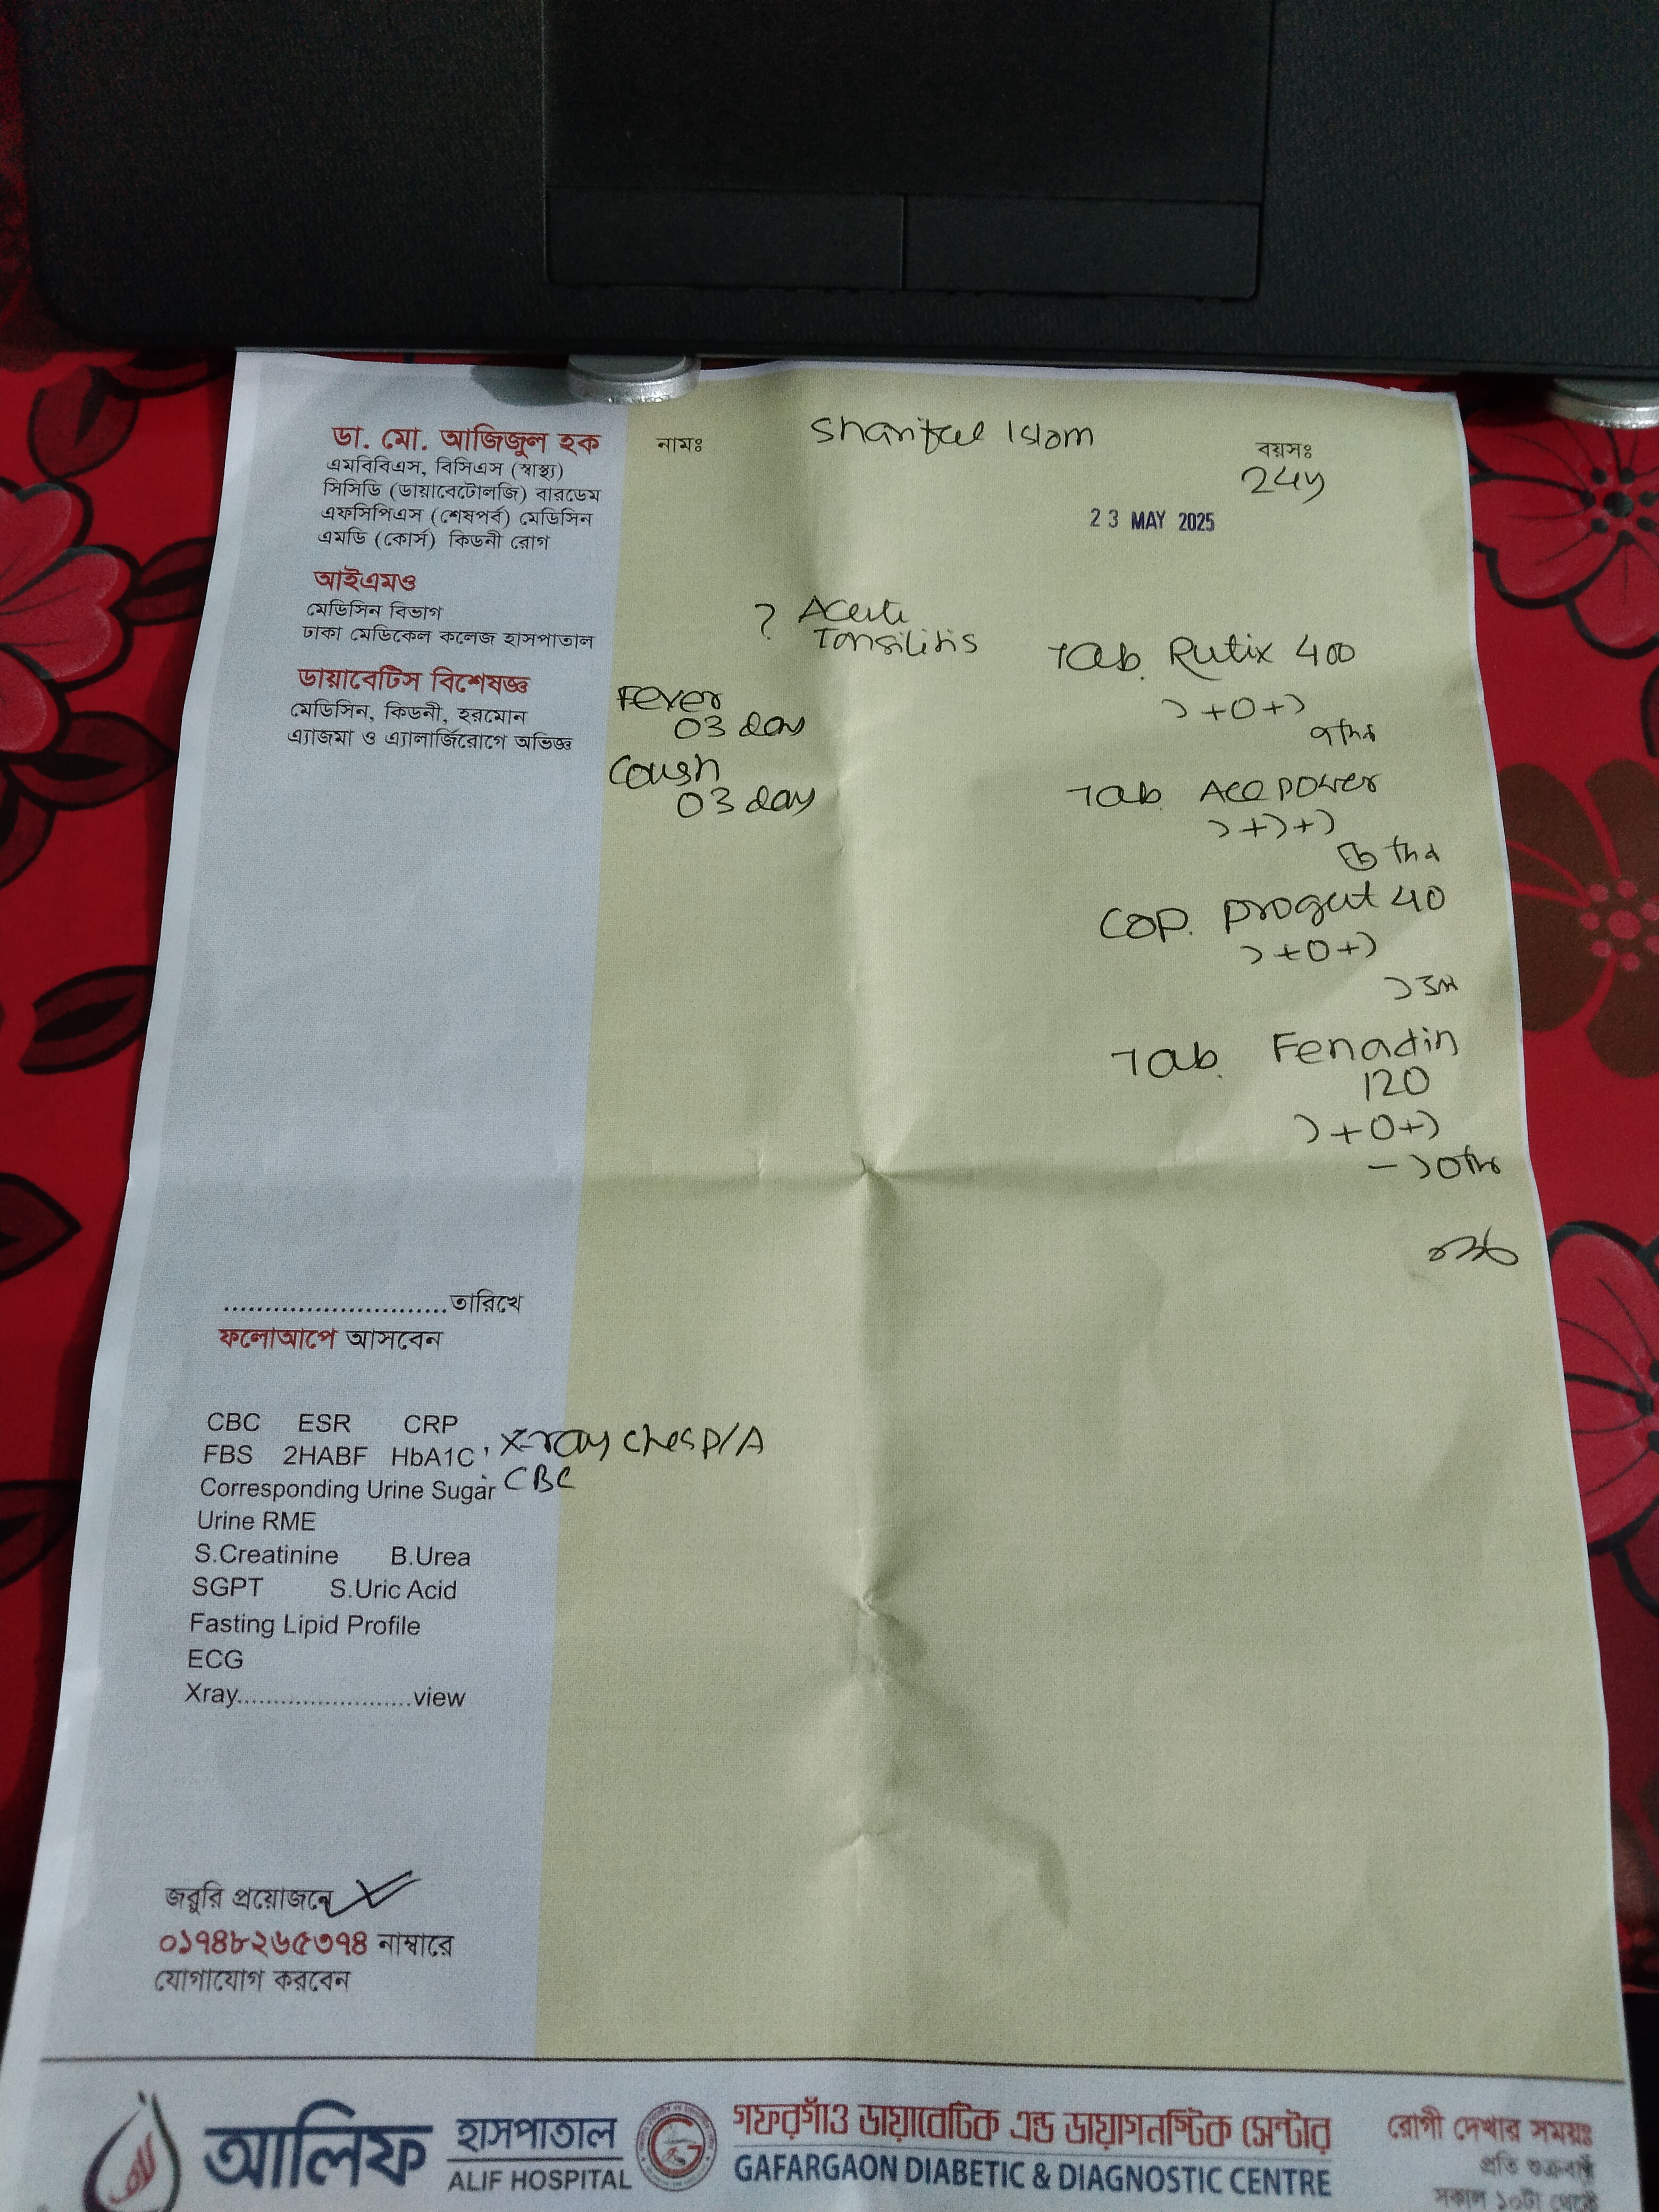 ডা. মো. আজিজুল হক
এমবিবিএস, বিসিএস (স্বাস্থ্য)
সিসিডি (ডায়াবেটোলজি) বারডেম
এফসিপিএস (শেষপর্ব) মেডিসিন
এমডি (কোর্স) কিডনী রোগ
আইএমও
মেডিসিন বিভাগ
ঢাকা মেডিকেল কলেজ হাসপাতাল
ডায়াবেটিস বিশেষজ্ঞ
মেডিসিন, কিডনী, হরমোন
এ্যাজমা ও এ্যালার্জিরোগে অভিজ্ঞ
নামঃ Shariful Islam
বয়সঃ
24y
23 MAY 2025
? Acute
Tonsilitis
Fever
03 day
Cough
03 day
Tab. Rutix 400
১+০+১
Tab. Ace power
১+১+১
Cap. Progut 40
১+০+১
Tab. Fenadin
120
১+০+১
..............................তারিখে
ফলোআপে আসবেন
CBC ESR CRP
FBS 2HABF HbA1C
X-ray chest P/A
Corresponding Urine Sugar
CBC
Urine RME
S.Creatinine B.Urea
SGPT S.Uric Acid
Fasting Lipid Profile
ECG
Xray........................view
জরুরি প্রয়োজনে
০১৭৪৮২৬৫৩৭৪ নাম্বারে
যোগাযোগ করবেন
আলিফ হাসপাতাল
ALIF HOSPITAL
গফরগাঁও ডায়াবেটিক এন্ড ডায়াগনস্টিক সেন্টার
GAFARGAON DIABETIC & DIAGNOSTIC CENTRE
রোগী দেখার সময়ঃ
প্রতি শুক্রবার
সকাল ১০টা থেকে